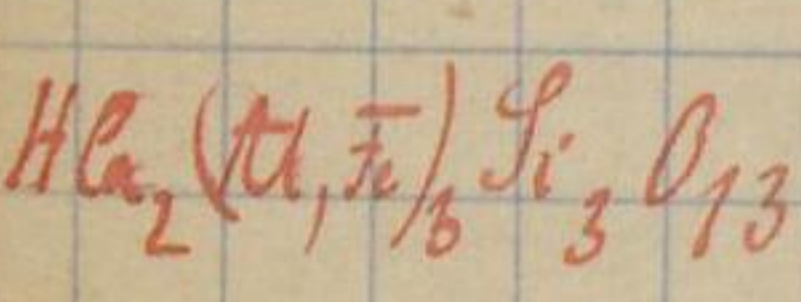 HCa₂(Al, Fe)₃Si₃O₁₃